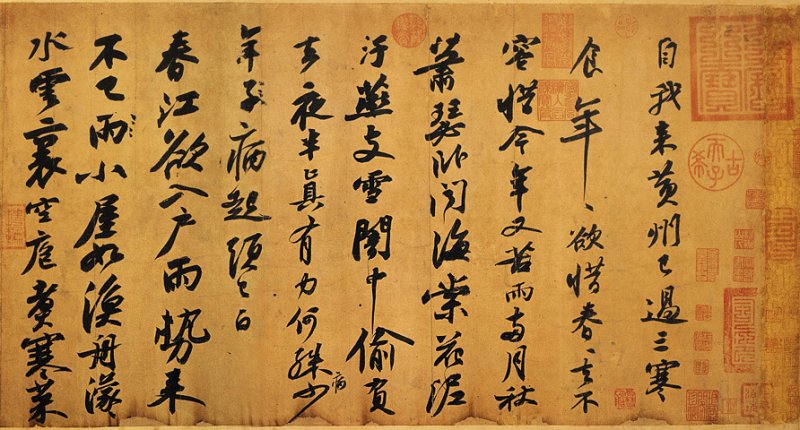 自我来黄州已過三寒
食年〻欲惜春〻去不
容惜今年又苦雨兩月秋
蕭瑟臥聞海棠花泥
汙燕支雪闇中偷負
去夜半真有力何殊病少
年子病起頭已白
春江欲入戶雨勢来
不已雨小屋如漁舟濛
水雲裏空庖煮寒菜
古希天子